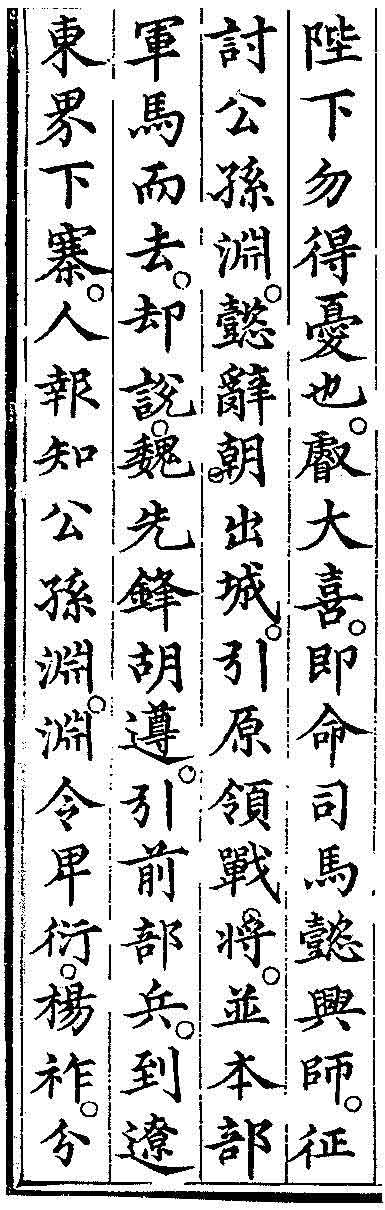 陛下勿得憂也。叡大喜。即命司馬懿興師。征
討公孫淵。懿辭朝出城。引原領戰將。並本部
軍馬而去。却說。魏先鋒胡遵。引前部兵。到遼
東界下寨。人報知公孫淵。淵令卑衍。楊祚。分